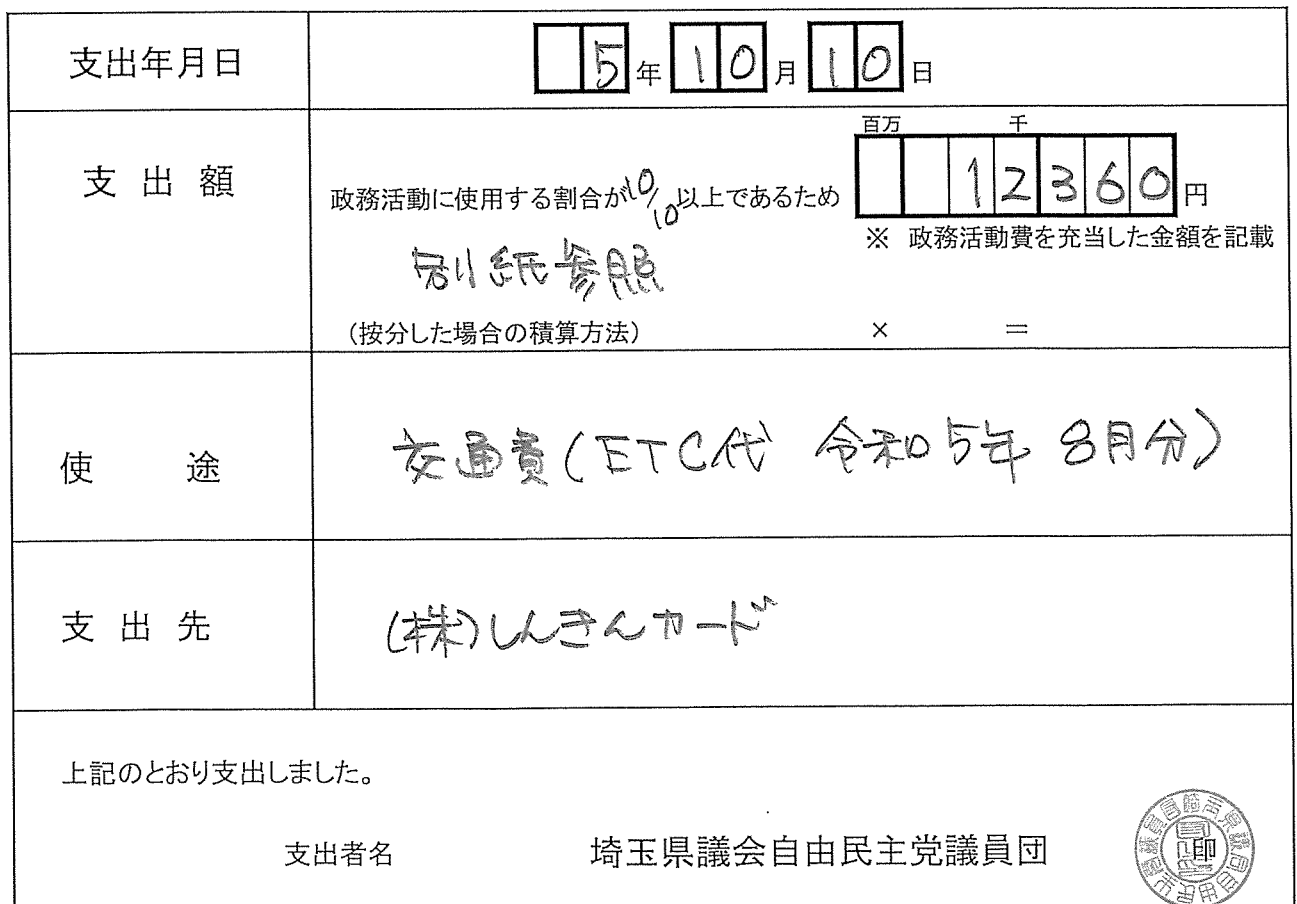 支出年月日 5年 10月 10日
百万 千
支出額 政務活動に使用する割合が10/10以上であるため 12360円
※ 政務活動費を充当した金額を記載
別紙参照
(按分した場合の積算方法) × =
使途 交通費(ETC代 令和5年 8月分)
支出先 (株)しんきんカード
上記のとおり支出しました。
支出者名 埼玉県議会自由民主党議員団 印